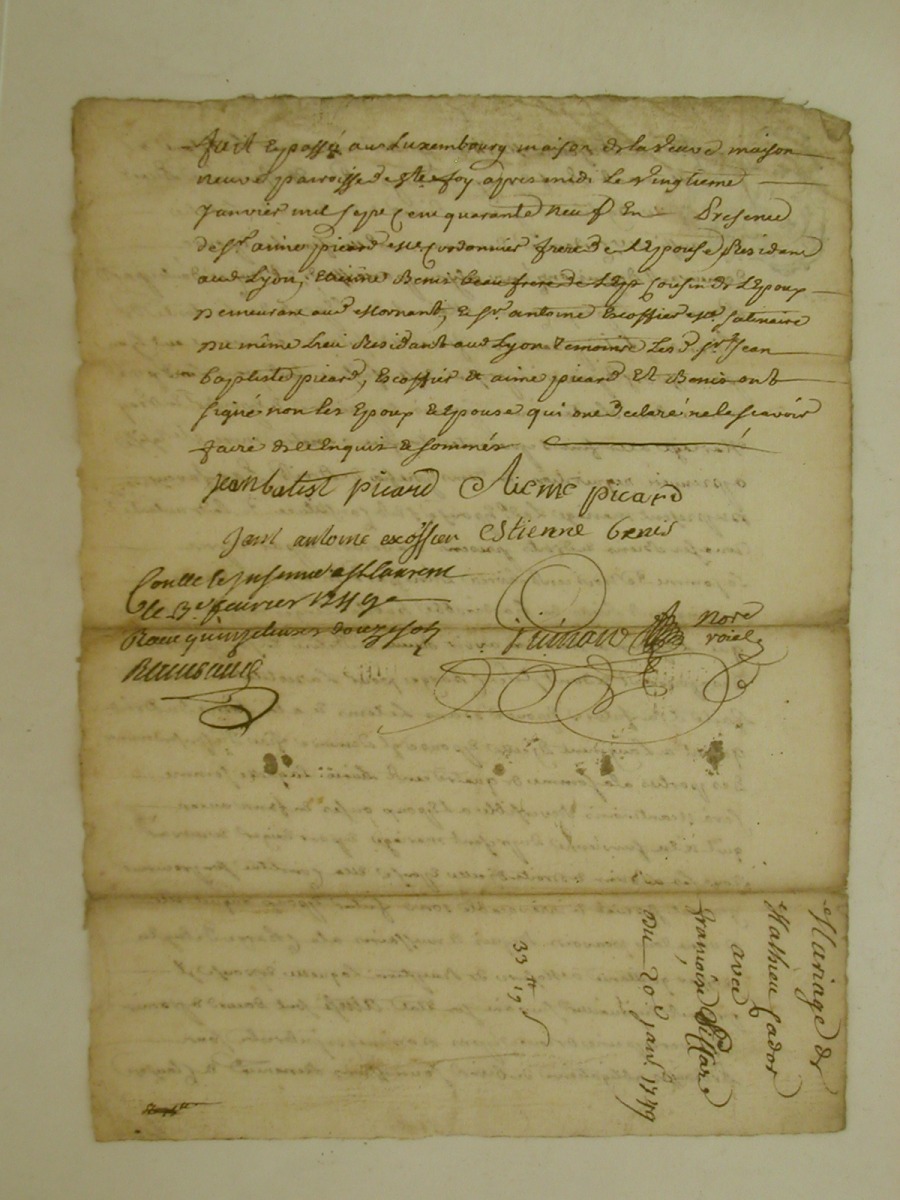 fait et passé au Luxembourg maison de la veuve maison
neuve paroisse de Ste foy apres midi le vingtieme
Janvier mil sept cent quarante neuf En Presence
de Sr aime picard Cordonnier frere de L'Epouse Residant
aud Lyon, Benis Cousin de L'Epoux
Demeurant aud Mornant, et Sr antoine Escoffier
du même Lieu Residant aud Lyon temoins Les d. Srs Jean
baptiste picard, Escoffier et aime picard Et Benis ont
signé non les Epoux et Epouse qui ont declaré ne le scavoir
faire de ce Enquis et sommés
Jean batist picard Aieme picard
Jant antoine excoffier Estienne benis
Conllé St Laurent
le 3e fevrier 1749
Receu quinze livres douze sols
Nore
roial
Mariage de
Mathieu Cador
avec
francoise
Du 20e janv. 1749
33 tt 19 s